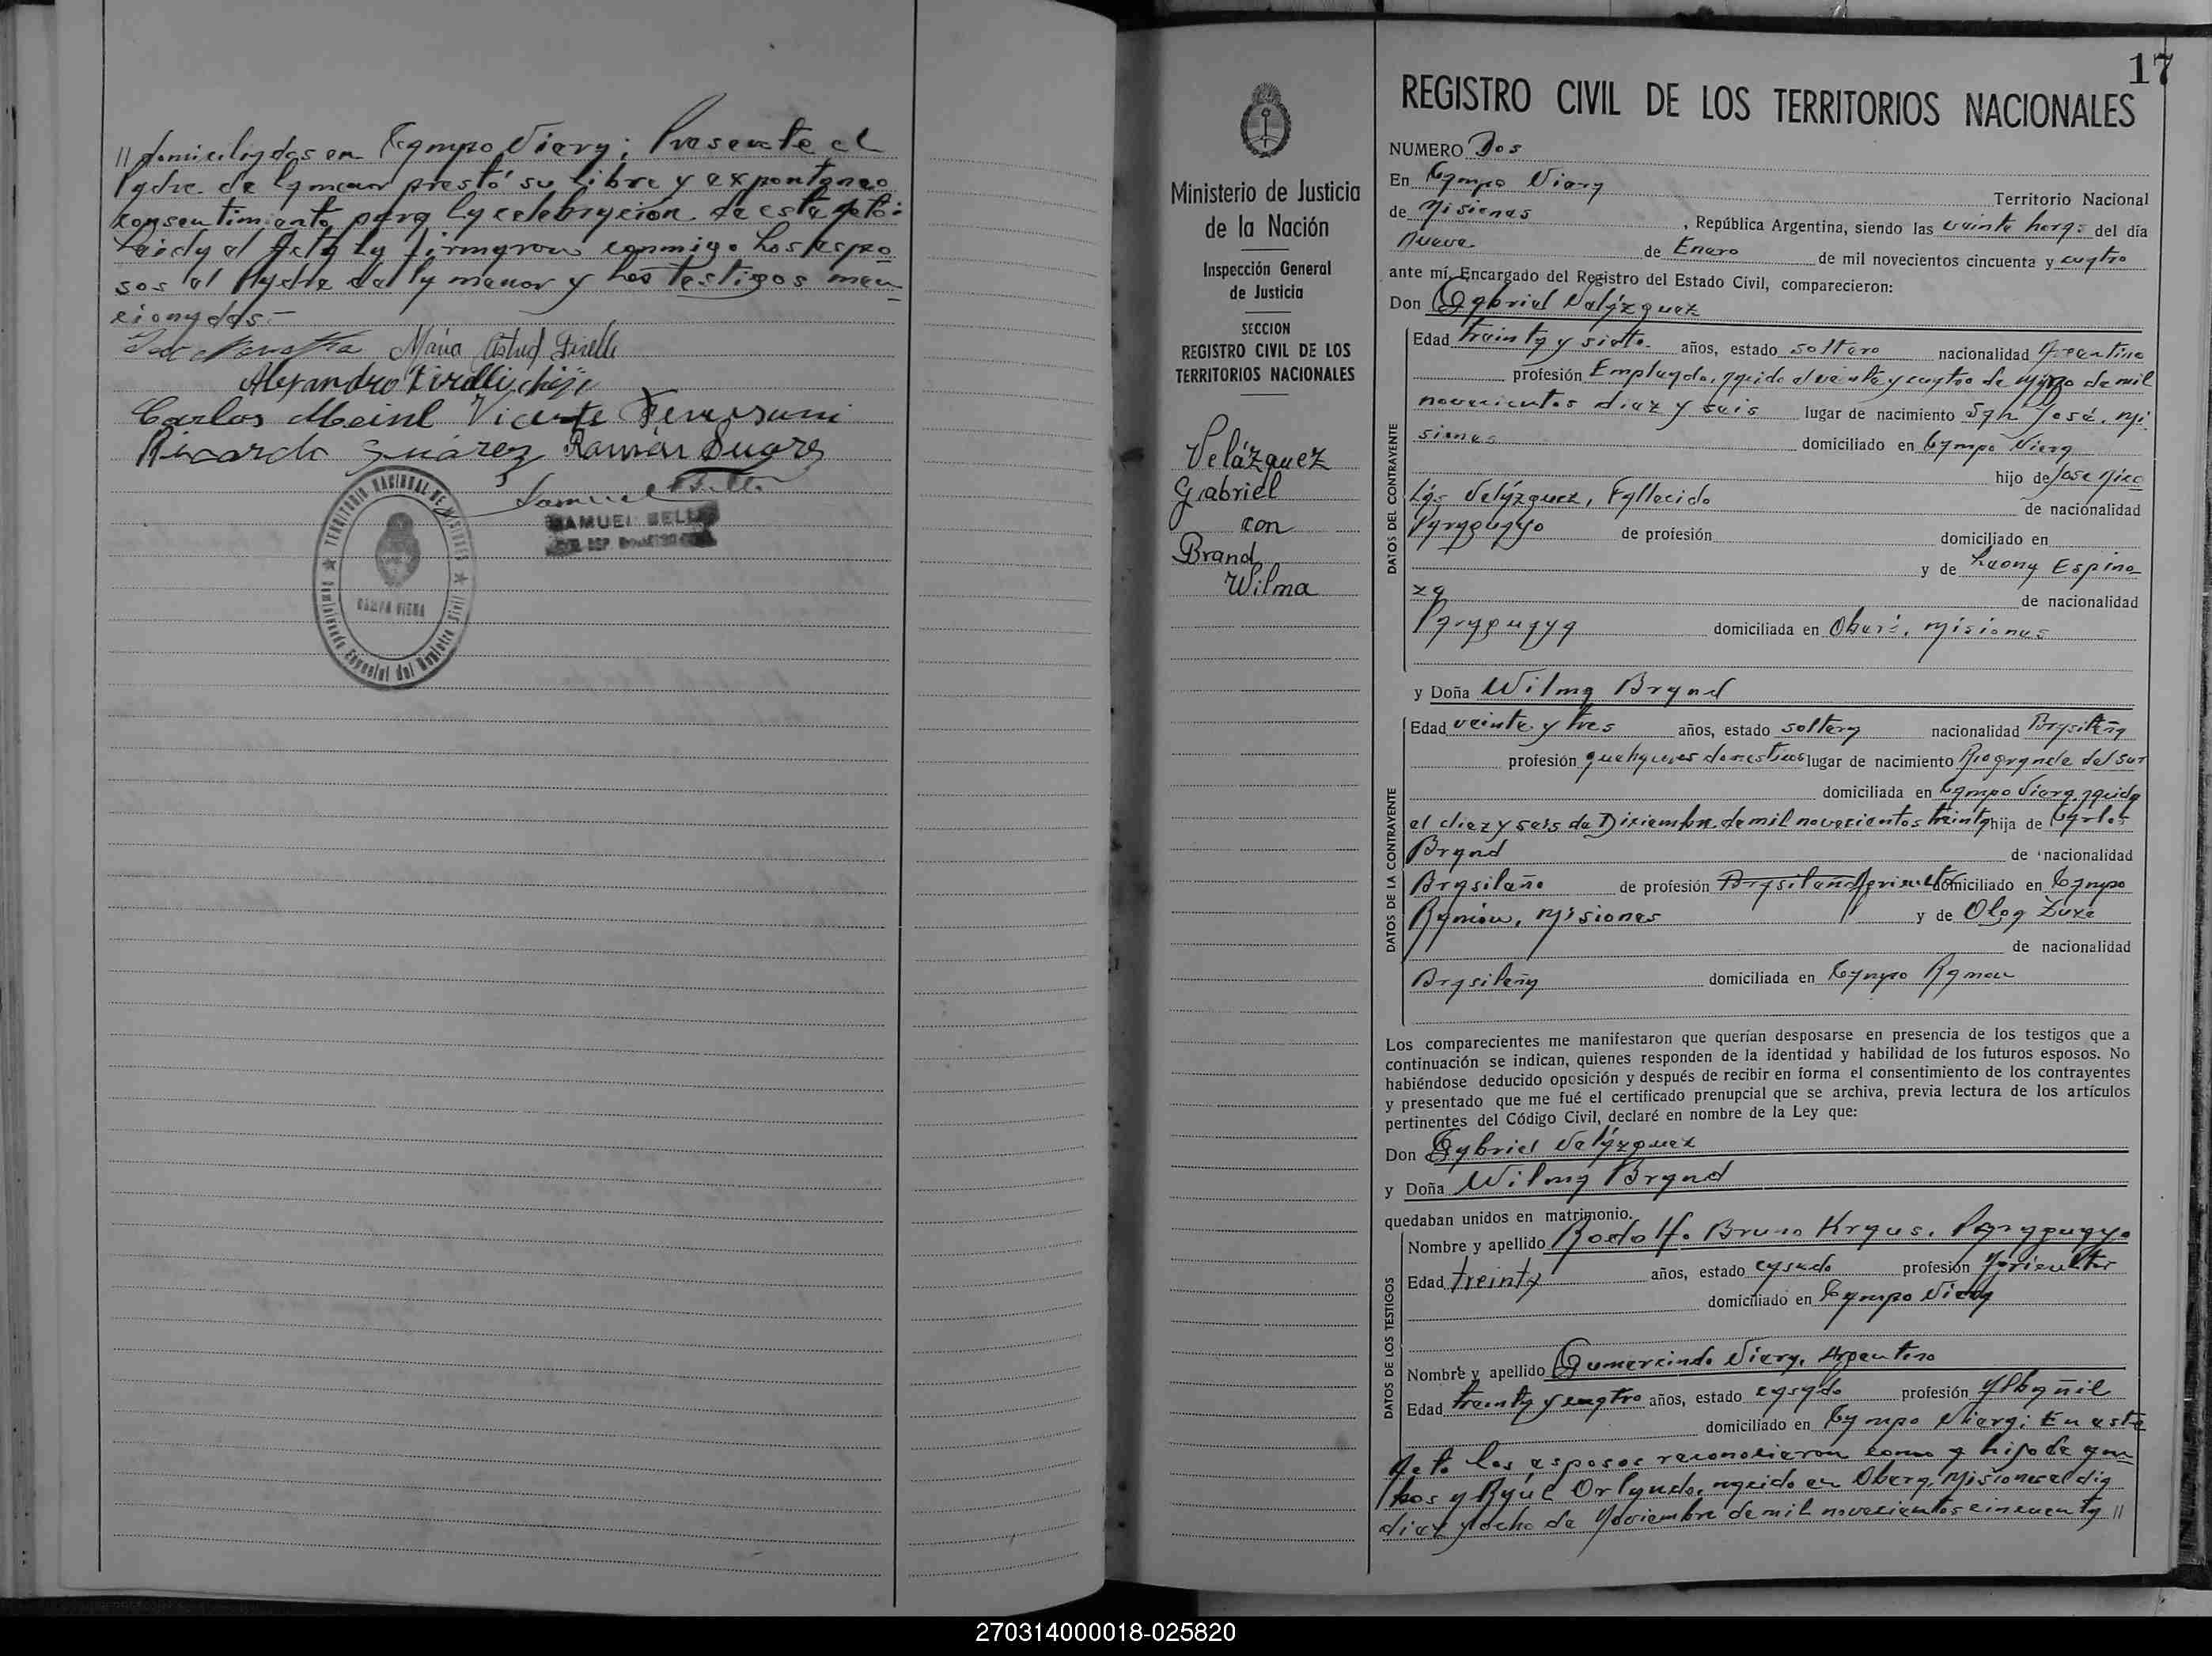 // domiciliados en Campo Viera; Presente el
Padre de la menor prestó su libre y expontaneo
consentimiento para la celebración de este acto:
Leida el Acta la firmaron conmigo Los espo
sos el Padre de la menor y Los testigos men
cionados.-
María Astrid Zirelli
Alejandro Zirelli, hijo
Carlos Meinl Vicente
Ricardo Suárez Ramón Suarez
Samuel
TERRITORIO NACIONAL DE MISIONES
CAMPO VIERA
SAMUEL
17
REGISTRO CIVIL DE LOS TERRITORIOS NACIONALES
Ministerio de Justicia
de la Nación
Inspección General
de Justicia
SECCION
REGISTRO CIVIL DE LOS
TERRITORIOS NACIONALES
Velázquez
Gabriel
con
Brand
Wilma
NUMERO Dos
En Campo Viera Territorio Nacional
de Misiones, República Argentina, siendo las veinte horas del día
Nueve de Enero de mil novecientos cincuenta y cuatro
ante mí, Encargado del Registro del Estado Civil, comparecieron:
Don Gabriel Velázquez
DATOS DEL CONTRAYENTE
Edad treinta y siete años, estado soltero nacionalidad Argentino
profesión Empleado, nacido el veinte y cuatro de Marzo de mil
novecientos diez y seis lugar de nacimiento San José, Mi
siones domiciliado en Campo Viera
hijo de José Nico
lás Velázquez, Fallecido de nacionalidad
Paraguayo de profesión domiciliado en
y de Leona Espino
za de nacionalidad
Paraguaya domiciliada en Oberá, Misiones
y Doña Wilma Brand
DATOS DE LA CONTRAYENTE
Edad veinte y tres años, estado soltera nacionalidad Brasileña
profesión quehaceres domesticos lugar de nacimiento Rio grande del Sur
domiciliada en Campo Viera, nacida
el diez y seis de Diciembre de mil novecientos treinta hija de Carlos
Brand de nacionalidad
Brasileño de profesión Brasileño Agricultor domiciliado en Campo
Ramón, Misiones y de Olga Zuze
de nacionalidad
Brasileña domiciliada en Campo Ramon
Los comparecientes me manifestaron que querían desposarse en presencia de los testigos que a
continuación se indican, quienes responden de la identidad y habilidad de los futuros esposos. No
habiéndose deducido oposición y después de recibir en forma el consentimiento de los contrayentes
y presentado que me fué el certificado prenupcial que se archiva, previa lectura de los artículos
pertinentes del Código Civil, declaré en nombre de la Ley que:
Don Gabriel Velázquez
y Doña Wilma Brand
quedaban unidos en matrimonio.
DATOS DE LOS TESTIGOS
Nombre y apellido Rodolfo Bruno Kraus, Paraguayo
Edad treinta años, estado casado profesión Agricultor
domiciliado en Campo Viera
Nombre y apellido Gumercindo Viera, Argentino
Edad treinta y cuatro años, estado casado profesión Albañil
domiciliado en Campo Viera; En este
Acto los esposos reconocieron como a hijo de am
bos a Raúl Orlando, nacido en Obera, Misiones el dia
diez y ocho de Noviembre de mil novecientos cincuenta //
270314000018-025820